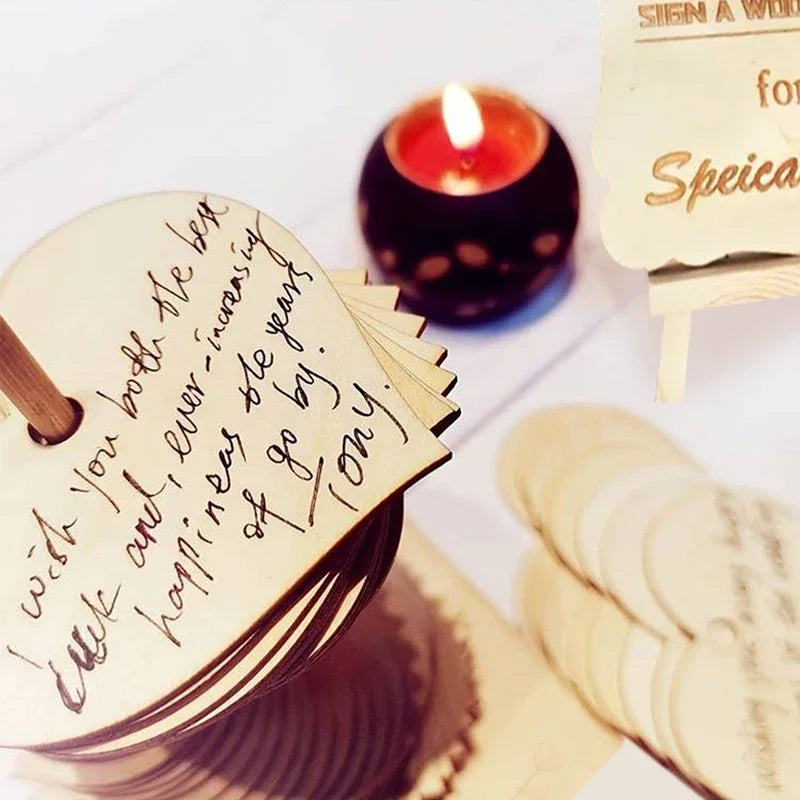 I wish you both the best
luck and, ever-increasing
happiness the years
of go by.
Tony.
SIGN A WOO
for
Speica